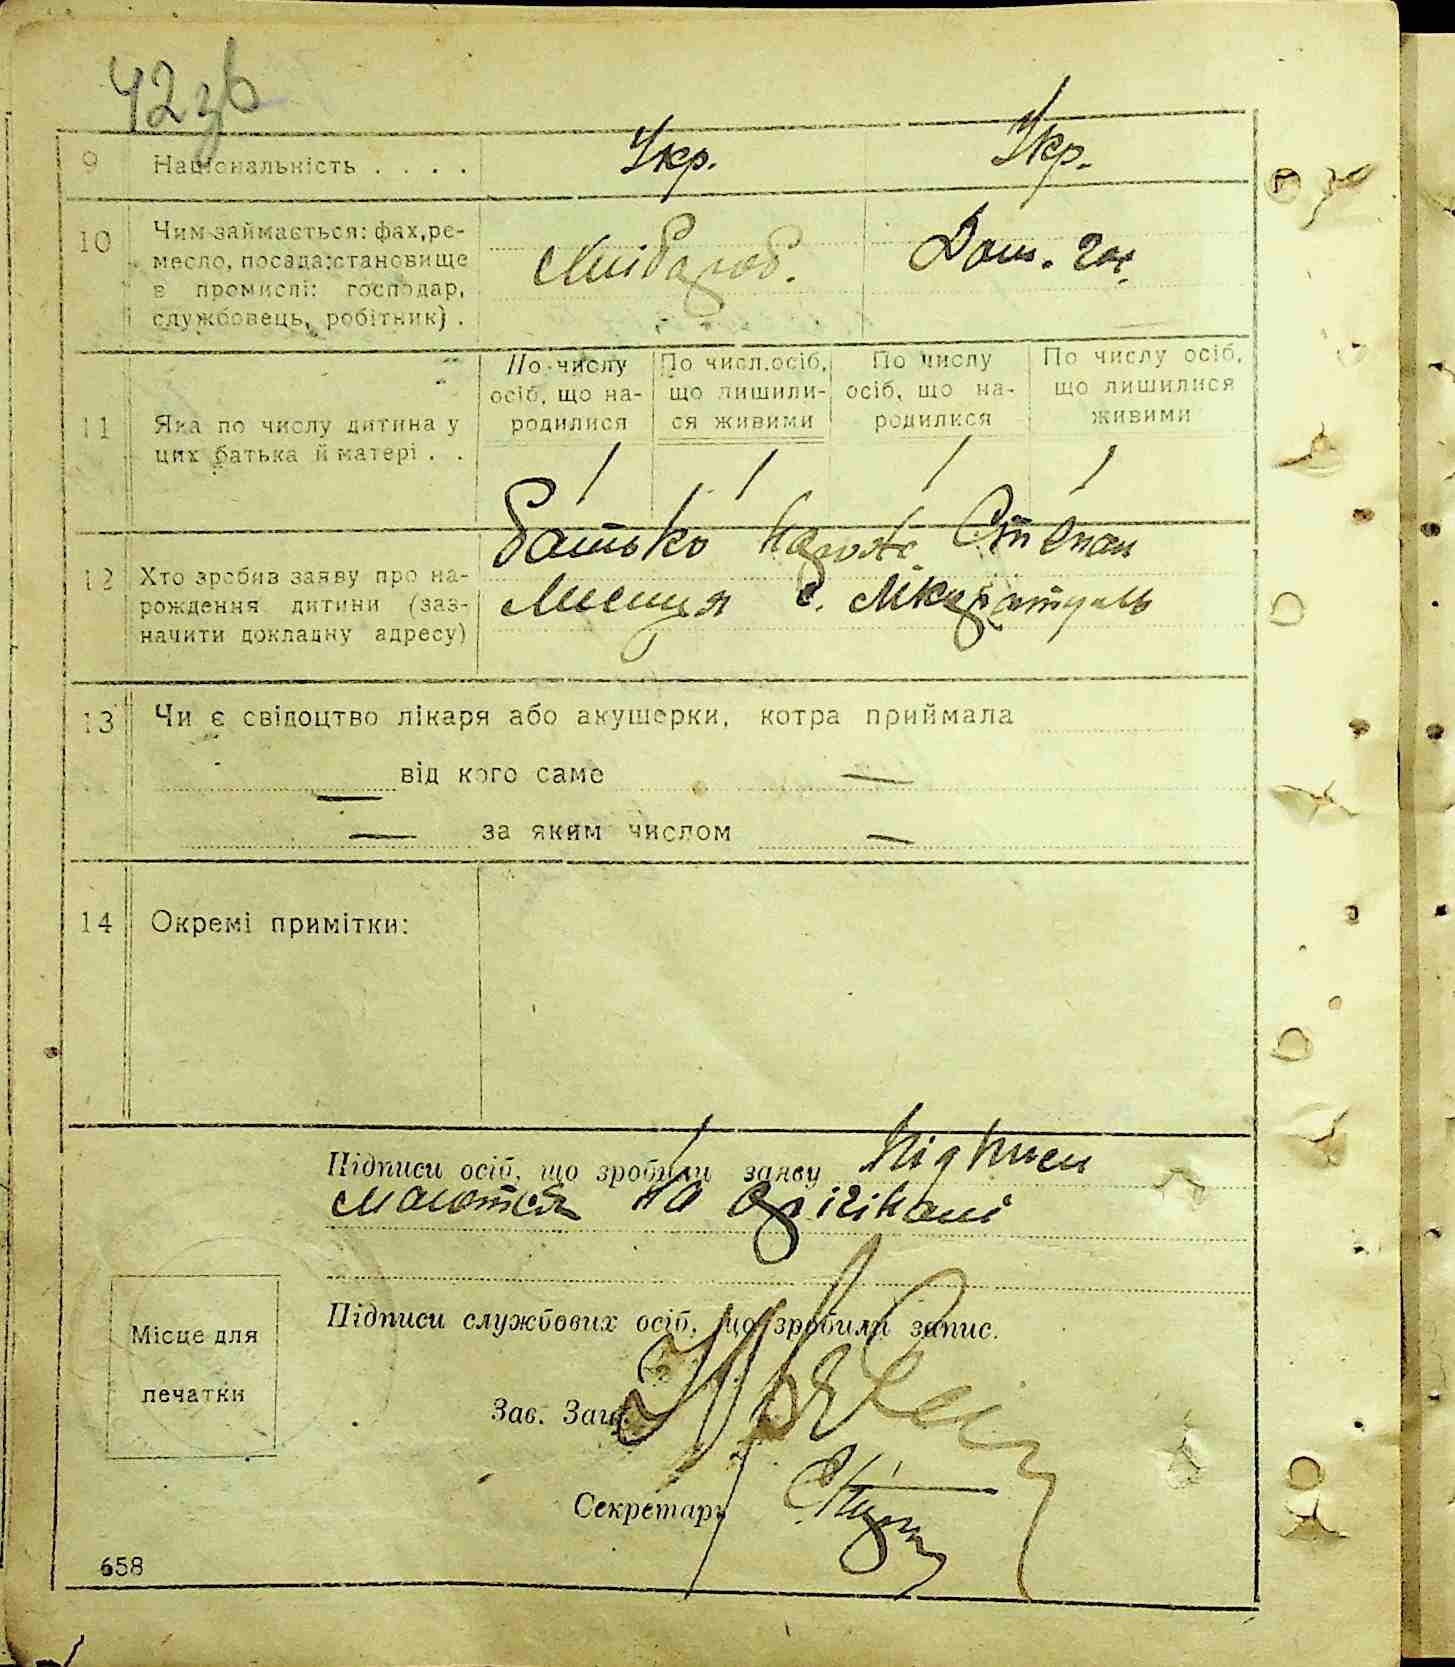 42 зв
9 Національність . . . . Укр. Укр.
10 Чим займається: фах, ре-
месло, посада; становище
в промислі: господар,
службовець, робітник) .
Хлібороб. Дом. гос.
11 Яка по числу дитина у
цих батька й матері . .
По числу
осіб, що на-
родилися
По числ. осіб,
що лишили-
ся живими
По числу
осіб, що на-
родилися
По числу осіб,
що лишилися
живими
1 1 1 1
12 Хто зробив заяву про на-
рождення дитини (заз-
начити докладну адресу)
Батько Степан
с.
13 Чи є свідоцтво лікаря або акушерки, котра приймала
— від кого саме —
— за яким числом —
14 Окремі примітки:
Підписи осіб, що зробили заяву Підписи
маються на оригіналі
Підписи службових осіб, що зробили запис.
Місце для
печатки
Зав. Загс
Секретарь
658